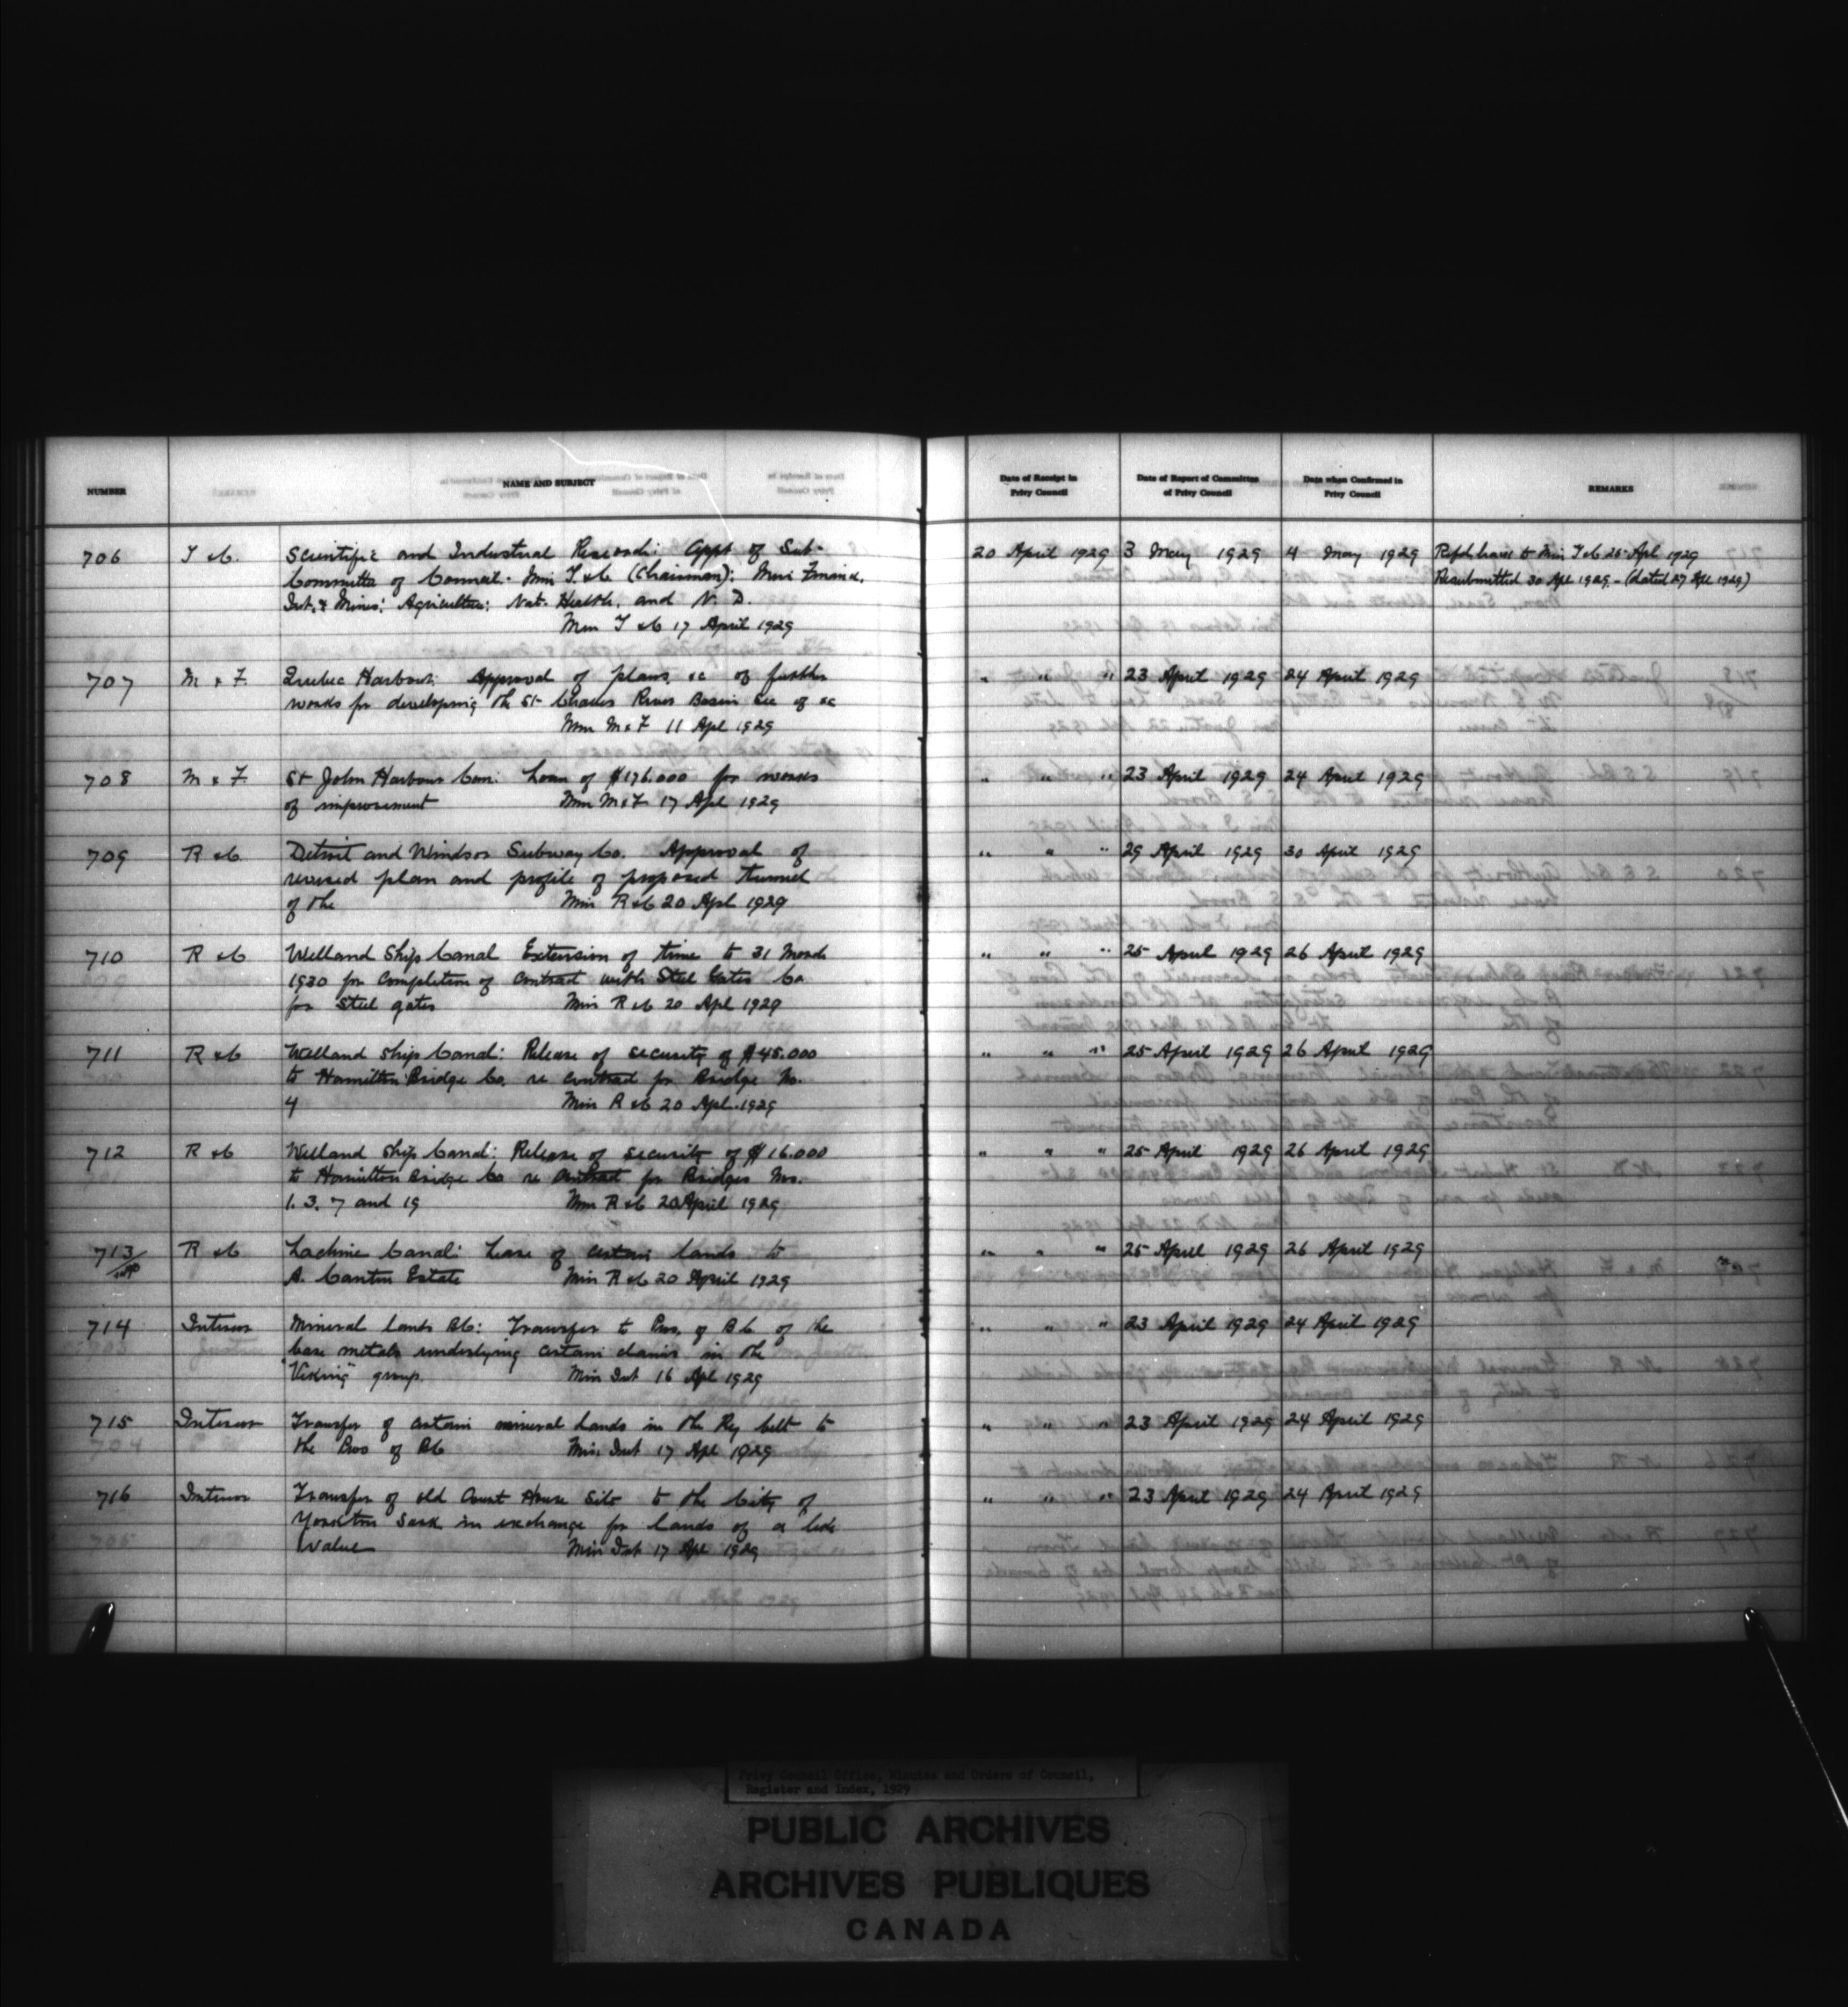 NUMBER NAME AND SUBJECT Date of Receipt in Privy Council Date of Report of Committee of Privy Council Date when Confirmed in Privy Council REMARKS
706 T & C. Scientific and Industrial Research: Appt of Sub- 20 April 1929 3 May 1929 4 May 1929 Min T & C 25 Apl 1929
Committee of Council. Min T. & C (Chairman): Min Finance, Resubmitted 30 Apl 1929 - (dated 27 Apl 1929)
Int. & Mines: Agriculture: Nat. Health, and N. D.
Min T & C 17 April 1929
707 M & F. Quebec Harbour: Approval of plans, &c of further " " " 23 April 1929 24 April 1929
works for developing the St Charles River Basin Sec of &c
Min M & F 11 Apl 1929
708 M & F. St John Harbour Com: Loan of $176.000 for works " " " 23 April 1929 24 April 1929
of improvement Min M & F 17 Apl 1929
709 R & C. Detroit and Windsor Subway Co. Approval of " " " 29 April 1929 30 April 1929
revised plan and profile of proposed tunnel
of the Min R & C 20 Apl 1929
710 R & C Welland Ship Canal Extension of time to 31 March " " " 25 April 1929 26 April 1929
1930 for completion of contract with Steel Gates Co
for steel gates Min R & C 20 Apl 1929
711 R & C Welland Ship Canal: Release of security of $45.000 " " " 25 April 1929 26 April 1929
to Hamilton Bridge Co. re contract for Bridge No.
4 Min R & C 20 Apl. 1929
712 R & C Welland Ship Canal: Release of security of $16.000 " " " 25 April 1929 26 April 1929
to Hamilton Bridge Co re contract for Bridges Nos.
1. 3. 7 and 19 Min R & C 20 April 1929
713 R & C Lachine Canal: Lease of certain lands to " " " 25 April 1929 26 April 1929
A. Cantin Estate Min R & C 20 April 1929
714 Interior Mineral lands BC: Transfer to Prov. of BC of the " " " 23 April 1929 24 April 1929
base metals underlying certain claims in the
"Viking" group. Min Int 16 Apl 1929
715 Interior Transfer of certain mineral lands in the Ry belt to " " " 23 April 1929 24 April 1929
the Prov of BC Min Int 17 Apl 1929
716 Interior Transfer of old Court House Site to the City of " " " 23 April 1929 24 April 1929
Yorkton Sask in exchange for lands of a like
value Min Int 17 Apl 1929
Privy Council Office, Minutes and Orders of Council,
Register and Index, 1929
PUBLIC ARCHIVES
ARCHIVES PUBLIQUES
CANADA